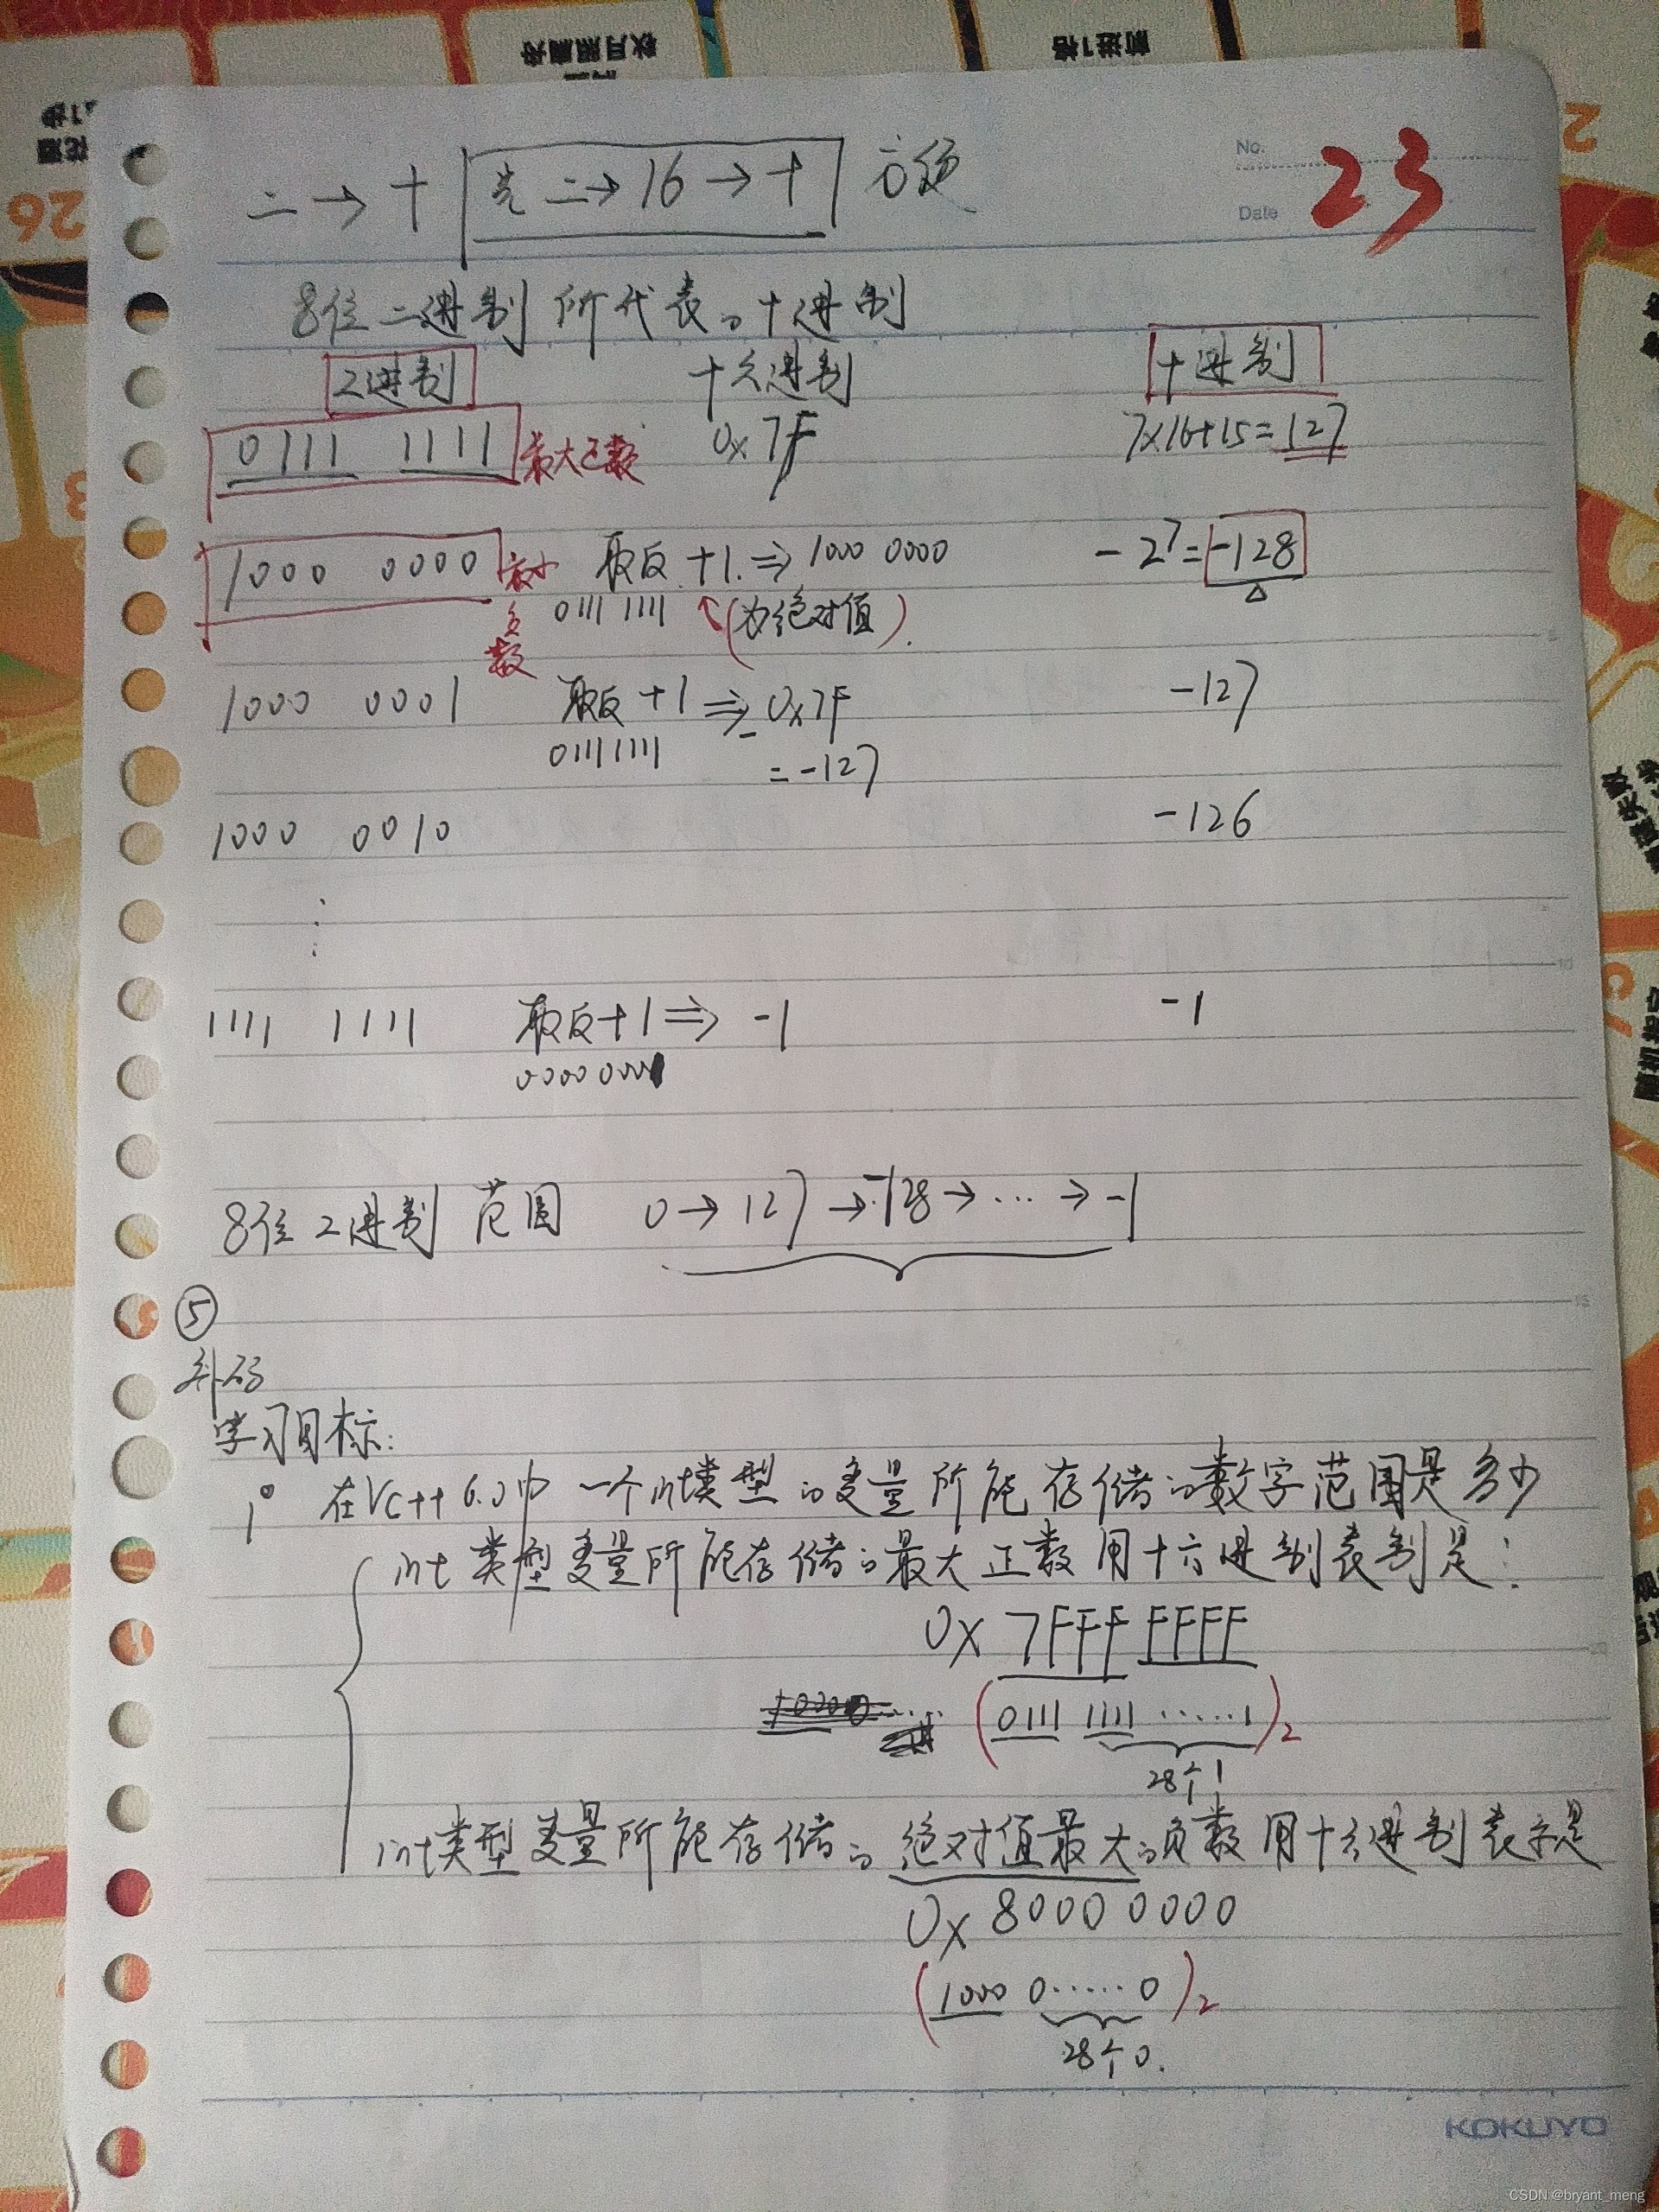 No.
Date
23
二→十 先二→16→十 方便
8位二进制所代表的十进制
2进制 十六进制 十进制
0111 1111 最大正数 0x7F 7x16+15=127
1000 0000 最小负数 取反+1.⇒1000 0000 -2⁷=-128
0111 1111 (为绝对值).
1000 0001 取反+1⇒-0x7F -127
0111 1111 =-127
1000 0010 -126
⋮
1111 1111 取反+1⇒-1 -1
0000 0001
8位2进制范围 0→127→-128→…→-1
⑤
补码
学习目标:
1° 在VC++6.0中一个int类型的变量所能存储的数字范围是多少
int类型变量所能存储的最大正数用十六进制表制是:
0x 7FFF FFFF
(0111 1111 ……1)₂
28个1
int类型变量所能存储的绝对值最大的负数用十六进制表示是
0x 8000 0000
(1000 0……0)₂
28个0.
KOKUYO
CSDN @bryant_meng
秋月照扁舟
前进1格
26
2